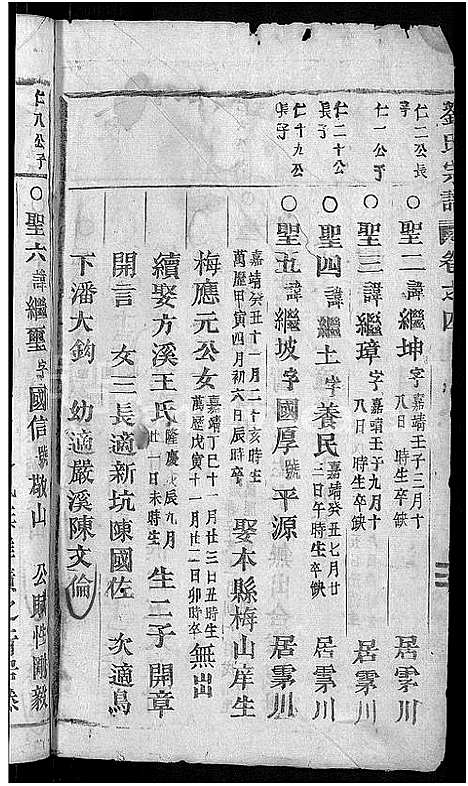 劉氏宗譜 卷之四
仁二公長子
○聖二 諱 繼坤 字 嘉靖壬子三月十八日 時生卒缺 居雲川
仁一公子
○聖三 諱 繼璋 字 嘉靖壬子九月十八日 時生卒缺 居雲川
仁二十公長子
○聖四 諱 繼土 字 養民 嘉靖癸丑七月廿三日午時生卒缺 居雲川
仁十九公長子
○聖五 諱 繼坡 字 國厚 號 平源 居雲川
嘉靖癸丑十一月二十亥時生
萬歷甲寅四月初六日辰時卒 娶本縣梅山庠生
梅應元公女 嘉靖丁巳十一月廿三日丑時生 萬歷戊寅十一月廿二日卯時卒 無出
續娶方溪王氏 隆慶戊辰九月廿一日未時生 生二子 開章
開言 女三長適新坑陳國佐 次適烏
下潘大鈞 幼適嚴溪陳文倫
仁八公子
○聖六 諱 繼璽 字 國信 號 敬山 公賦性剛毅